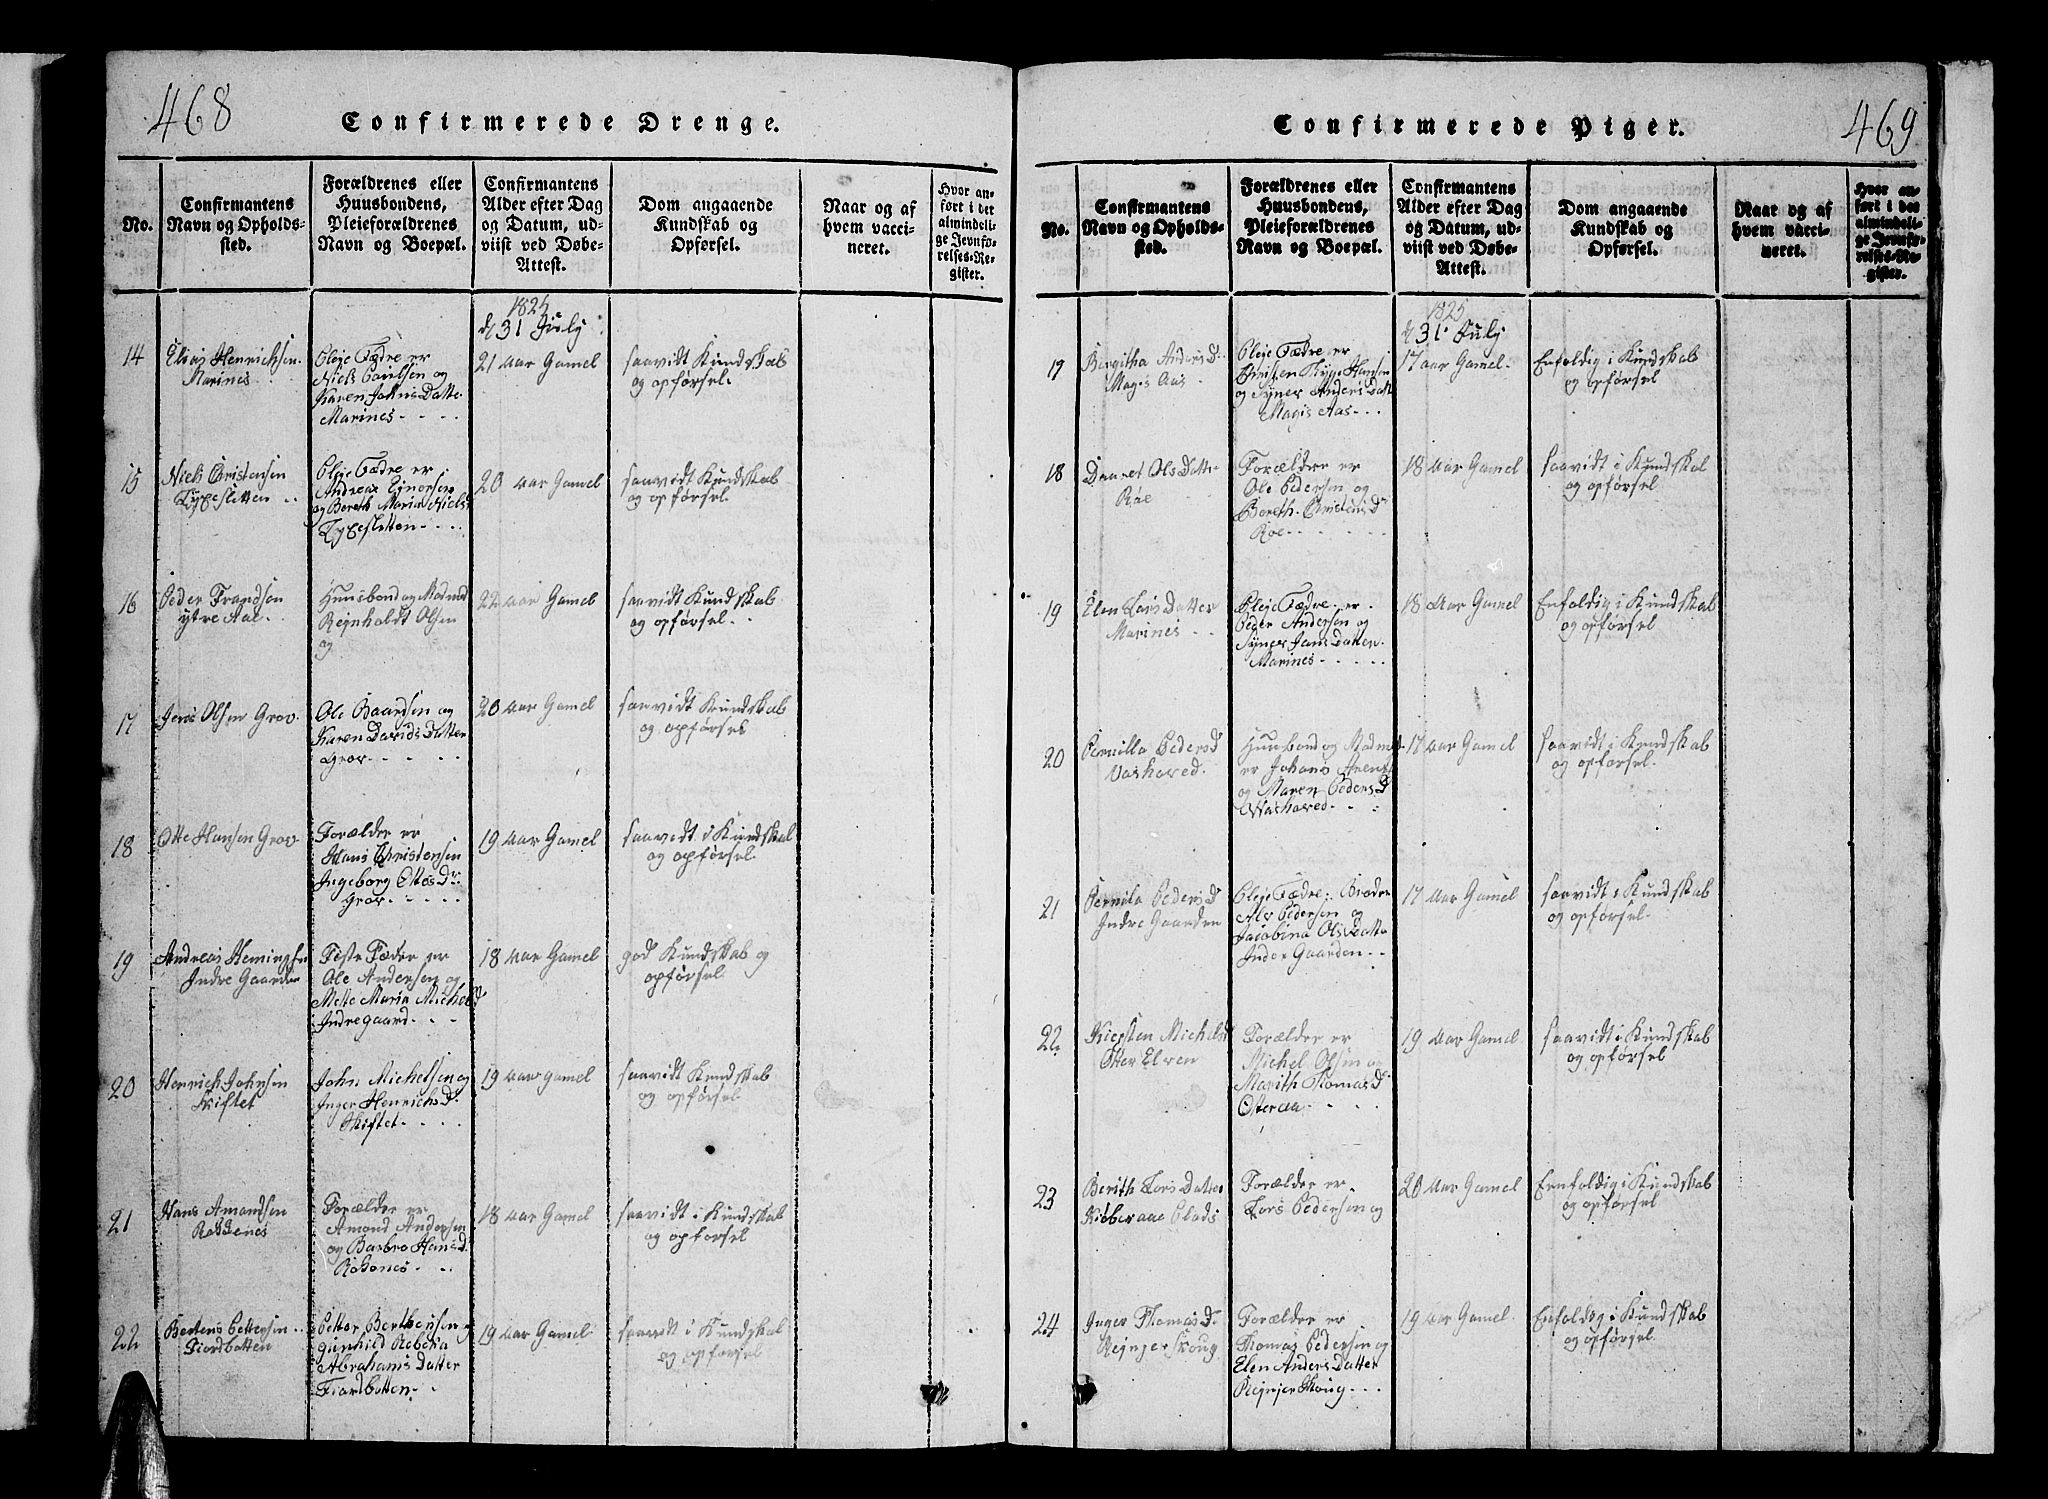 468
Confirmerede Drenge.
No.
Confirmantens
Navn og Opholds-
sted.
Forældrenes eller
Huusbondens,
Pleieforældrenes
Navn og Boepæl.
Confirmantens
Alder efter Dag
og Datum, ud-
viist ved Døbe-
Attest.
Dom angaaende
Kundskab og
Opførsel.
Naar og af
hvem vacci-
neret.
Hvor an-
ført i det
almindeli-
ge Jevnfø-
relses-Re-
gister.
1825
d 31 July
14
Elias Henrichsen
Marines
Pleje Fædre er
Niels Poulsen og
Karen Johns Datter
Marines
21 Aar Gamel
saavidt Kundskab
og opførsel.
15
Niels Christensen
Pleje Fædre er
Andreas Einersen
og Bereth Maria Niels
20 Aar Gamel
saavidt Kundskab
og opførsel.
16
Peder Frandsen
ytre Aae
Huusbond og Madmod
Rejnholdt Olsen
og
22 Aar Gamel
saavidt Kundskab
og opførsel.
17
Jens Olsen Grov
Ole Baardsen og
Karen Davids Datter
Grov
20 Aar Gamel
saavidt Kundskab
og opførsel
18
Otte Hansen Grov
Forælder er
Hans Christensen
Ingeborg Ottes Dr
Grov
19 Aar Gamel
saavidt i Kundskab
og opførsel.
19
Andreas Hemingsen
Indre Gaarden
Feste Fæder er
Ole Andersen og
Mette Maria Michels D
Indregaard
18 Aar Gamel
god Kundskab og
opførsel
20
Henrich Johnsen
Skiftet
John Michelsen og
Inger Henrichs D.
Skiftet
19 Aar gamel
saavidt Kundskab
og opførsel
21
Hans Amondsen
Forælder er
Amond Andersen
og Barbro Hans D.
18 Aar Gamel
saavidt i Kundskab
og opførsel
22
Bertens Pettersen
Fiordbotten
Petter Berthensen
Gunhild Rebecka
Abrahams Datter
Fiordbotten
19 Aar Gamel
saavidt i Kundskab
og opførsel
469
Confirmerede Piger.
No.
Confirmantens
Navn og Opholds-
sted.
Forældrenes eller
Huusbondens,
Pleieforældrenes
Navn og Boepæl.
Confirmantens
Alder efter Dag
og Datum, ud-
viist ved Døbe-
Attest.
Dom angaaende
Kundskab og
Opførsel.
Naar og af
hvem vacci-
neret.
Hvor an-
ført i det
almindeli-
ge Jevnfø-
relses-Re-
gister.
1825
d 31 July
17
Birgitha Anders D.
Magis Aas
Pleje Fædre er
Christen Hansen
og Synev Anders Datt
Magis Aas
17 aar Gamel
Enfoldig i Kundskab
og opførsel
18
Ols Datter
Roe
Forælder er
Ole Pedersen og
Bereth Christens D
Roe
18 Aar Gamel
saavidt i Kundskab
og opførsel
19
Elen Lars Datter
Marines
Pleje Fædre er
Peder Andersen og
Synev Jans Datter
Marines
18 Aar Gamel
Enfoldig i Kundskab
og opførsel
20
Pernilla Peders D
Vashoved
Huusbond og Madmod
er Johans
og Maren Peders D
Washoved
17 Aar Gamel
saavidt i Kundskab
og opførsel.
21
Pernila Peders D
Indre Gaarden
Pleje Fædre. Broder
Alv Pedersen og
Jacobina Ols Datter
Inder Gaarden
17 Aar Gamel
saavidt i Kundskab
og opførsel
22
Kiersten Michels D
Otter Elven
Forælder er
Michel Olsen og
Marith Tomas D
Otteraa
19 Aar Gamel
saavidt i Kundskab
og opførsel
23
Berith Lors Datter
Forælder er
Lors Pedersen og
20 Aar Gamel
Eenfoldig i Kundskab
og opførsel
24
Inger Thomas D.
Rejnjer Skoug
Forælder er
Thomas Pedersen og
Elen Anders Datter
Rejnjer Skoug
19 Aar Gamel
Enfoldig i Kundskab
og opførsel